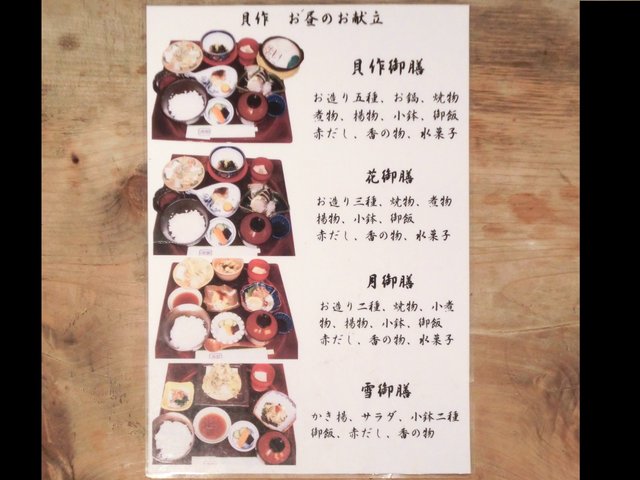 貝作 お昼のお献立
貝作御膳
お造り五種、お鍋、焼物
煮物、揚物、小鉢、御飯
赤だし、香の物、水菓子
花御膳
お造り三種、焼物、煮物
揚物、小鉢、御飯
赤だし、香の物、水菓子
月御膳
お造り二種、焼物、小煮
物、揚物、小鉢、御飯
赤だし、香の物、水菓子
雪御膳
かき揚、サラダ、小鉢二種
御飯、赤だし、香の物